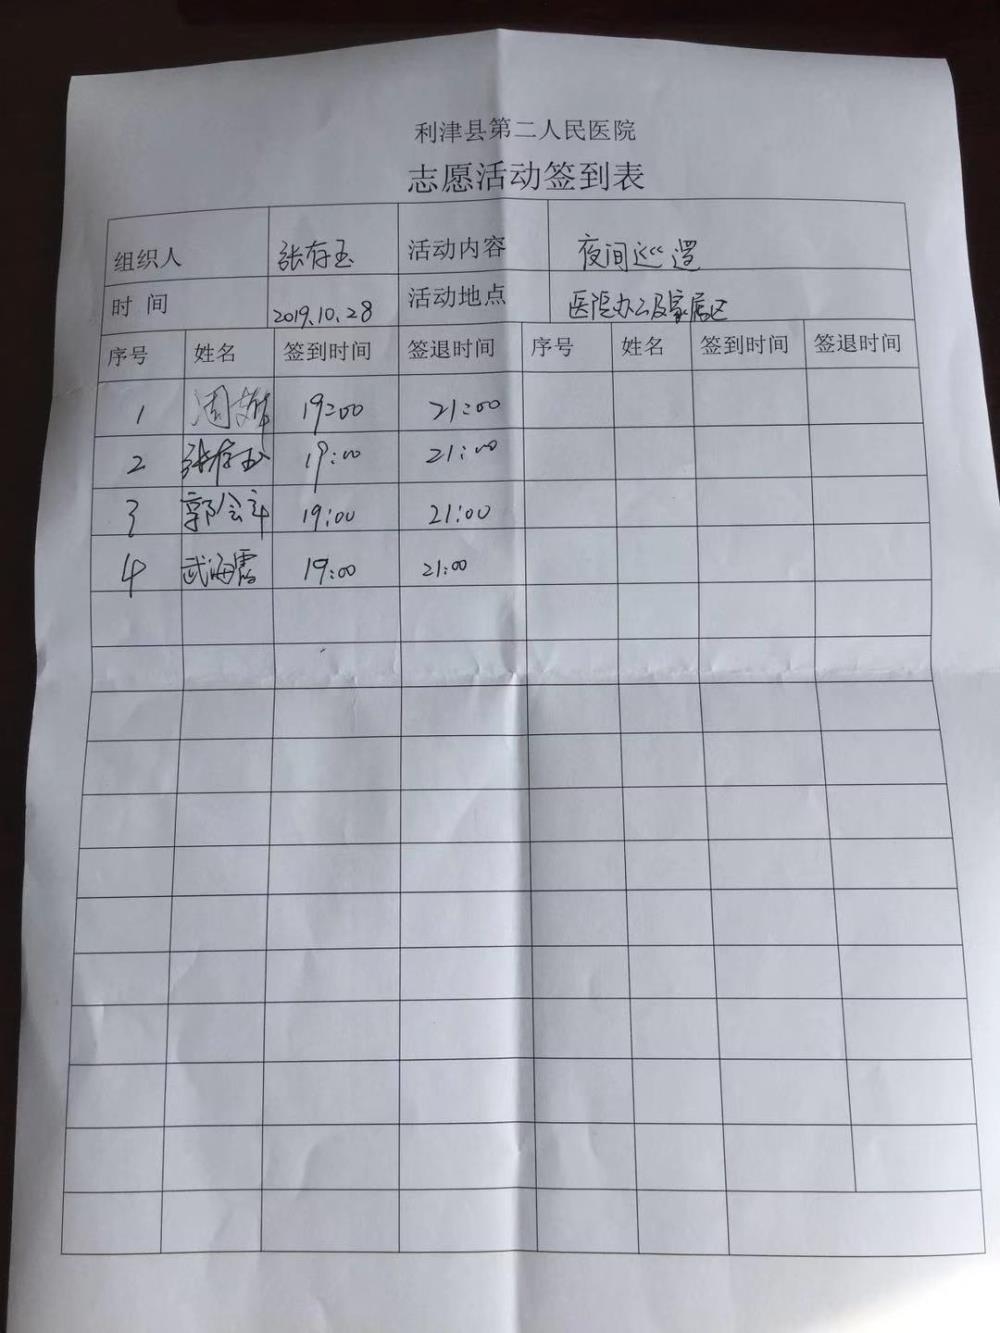 利津县第二人民医院
志愿活动签到表
组织人 张存玉 活动内容 夜间巡逻
时 间 2019.10.28 活动地点 医院办公及家属区
序号 姓名 签到时间 签退时间 序号 姓名 签到时间 签退时间
1 周 19:00 21:00
2 张存玉 19:00 21:00
3 郭会军 19:00 21:00
4 武海霞 19:00 21:00